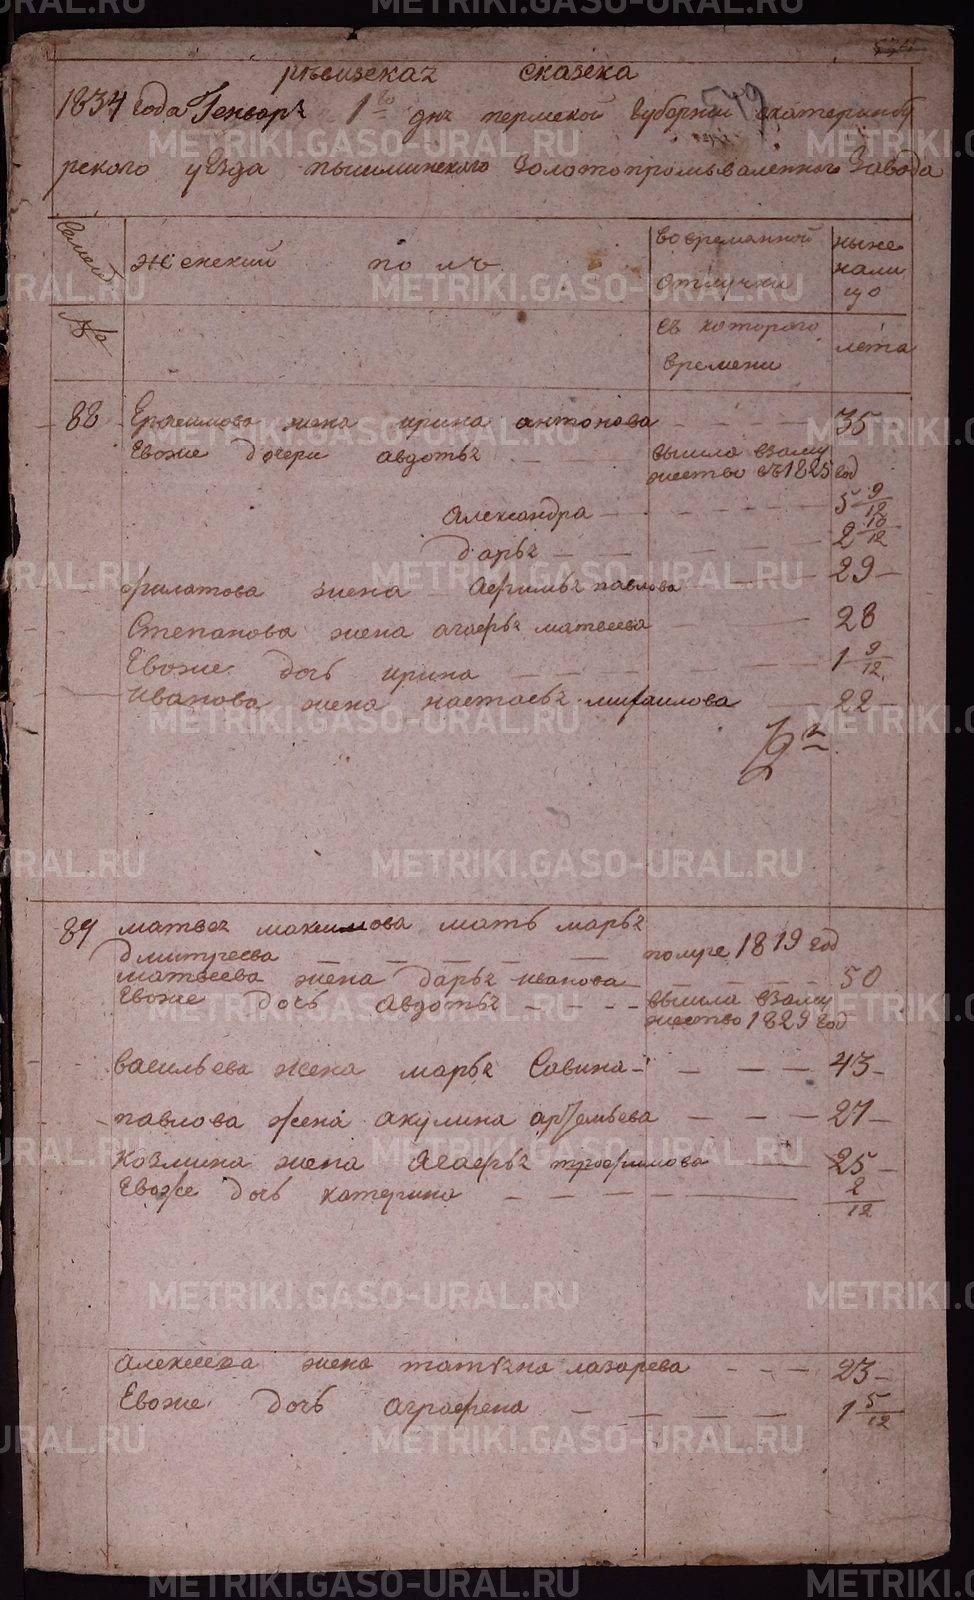 ревизская сказска
1834 года Генваря 1го дня пермской губернии екатеринбу
ргского уезда пышминского золотопромываленного завода
Семей женский полъ вовременной ныне
отлучки нали
цо
№ съ которого лета
времени
88 Ерасимова жена ирина антонова — — — 35
Евоже дочери авдотья — — вышла взаму
жество въ 1825 год
Александра — — — 5 9/12
дарья — — — 2 10/12
филатова жена афимья павлова — — 29
Степанова жена агафья матвеева — — 28
Евоже дочь ирина — — — 1 9/12
иванова жена настасья михаилова — 22
89 матвея максимова мать марья
дмитреева — — — — помере 1819 год
матвеева жена дарья иванова — — — 50
Евоже дочь авдотья — — — вышла взаму
жество 1829 год
васильева жена марья Савина — — — 43
павлова жена акулина артемьева — — — 27
козмина жена Агафья трофимова — 25
Евоже дочь катерина — — — — 2/12
алексеева жена татьяна лазарева — — — 23
Евоже дочь аграфена — — — — 1 5/12
METRIKI.GASO-URAL.RU